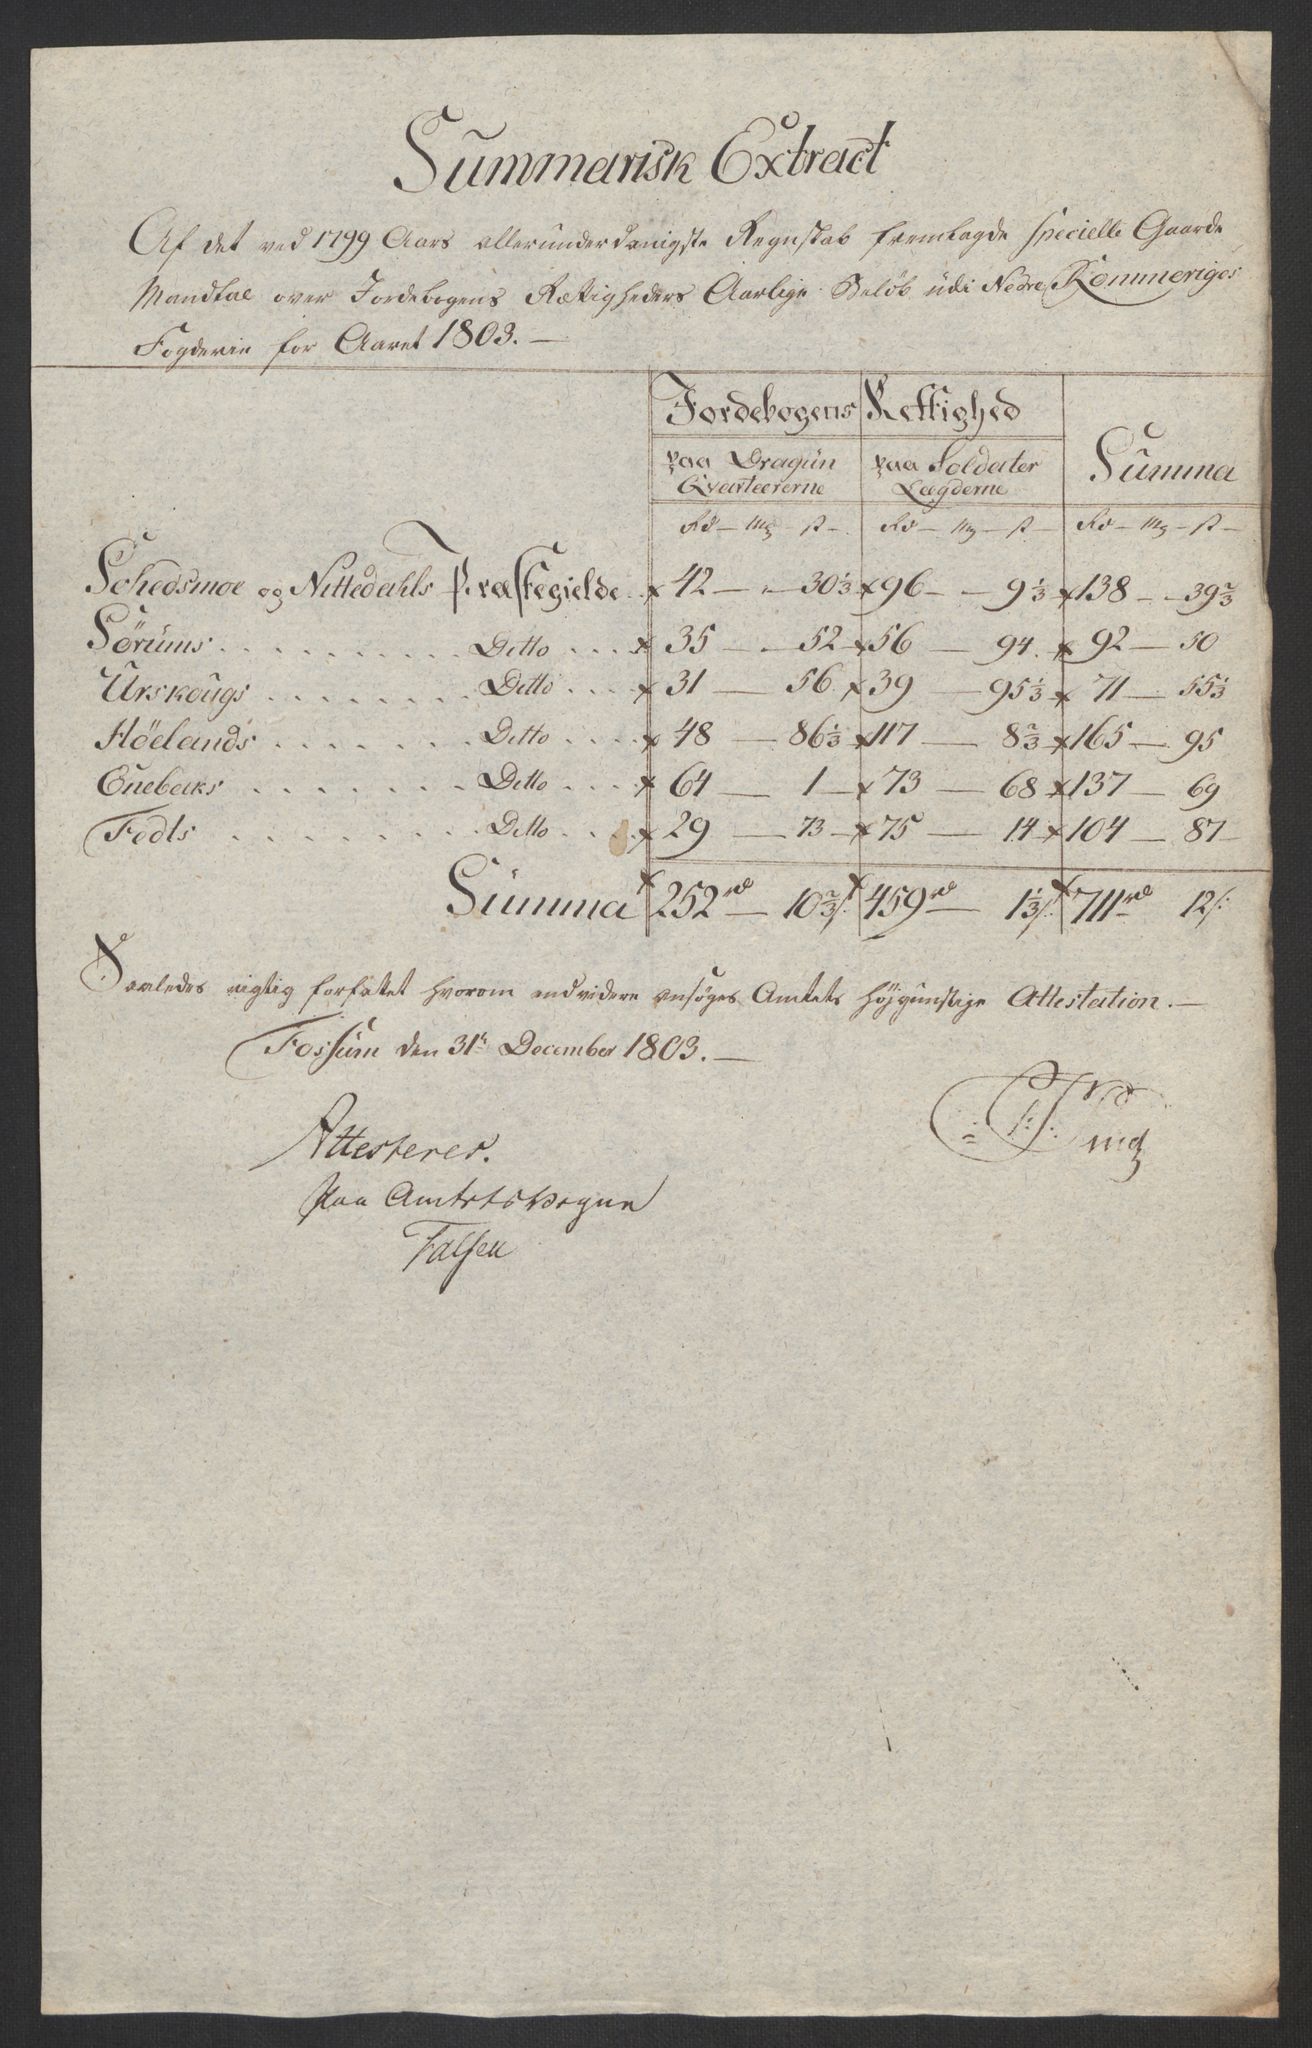 Summarisk Extract
Af det ved 1799 Aars allerunderdanigste Regnskab fremlagde specielle Gaarde
Mandtal over Jordebogens Rettigheders Aarlige Beløb udi Nedre Rommeriges
Fogderie for Aaret 1803. —
Jordebogens Rettighed
paa Dragün paa Soldater Summa
Qvarteererne Lægderne
Rd — Mg — s — Rd — Mg — s — Rd — Mg — s —
Schedsmoe og Nittedahls Præstegielde x 42 — - 30 1/3 x 96 - - 9 1/3 x 138 - - 39 2/3
Sørums . . . . . . . . . . Ditto . . . x 35 — - 52 — x 56 — 94. x 92 — 50
Urskougs . . . . . . . . Ditto . . . x 31 — 56 x 39 — 95 1/3 x 71 — 55 1/3
Høelands . . . . . . . . Ditto . . . x 48 — 86 1/3 x 117 — 8 2/3 x 165 — 95
Enebaks . . . . . . . . Ditto . . . x 64 — 1 — x 73 — 68 x 137 — 69
Fedts . . . . . . . . . Ditto . . . x 29 — 73 — x 75 — 14 x 104 — 87 —
Summa x 252 rd — 10 2/3 s: x 459 rd — 1 1/3 s: x 711 rd 12 s:
Saaledes rigtig forfattet hvorom endvidere ansøges Amtets højgunstige Attestation. —
Fossum den 31te December 1803. —
Attesteres.
Paa Amtets vegne
Falsen